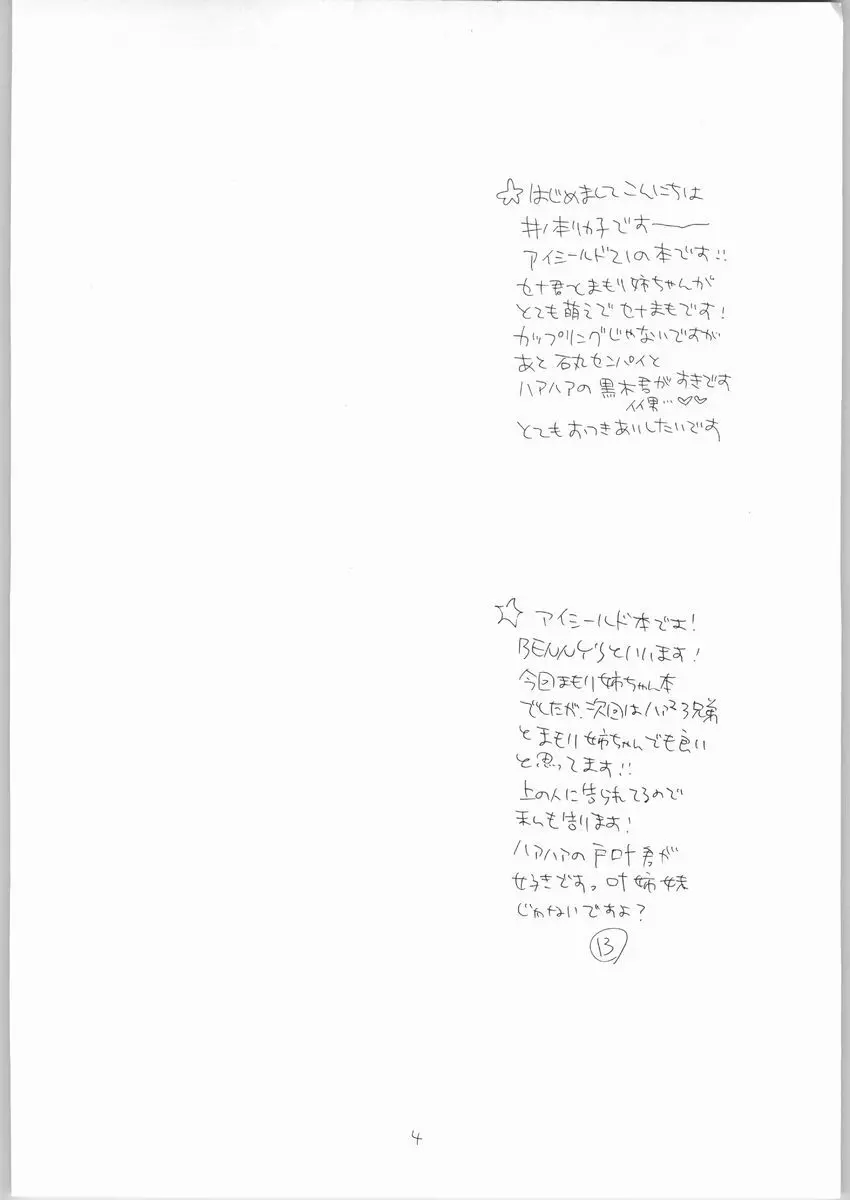 ☆はじめましてこんにちは
井ノ本リカ子です――
アイシールド21の本です!!
セナ君とまもり姉ちゃんが
とても萌えでセナまもです!
カップリングじゃないですが
あと 石丸センパイと
ハアハアの黒木君がすきです
イイ男…♡♡
とてもおつきあいしたいです
☆ アイシールド本です!
BENNY'Sといいます!
今回まもり姉ちゃん本
でしたが、次回はハァ×3兄弟
とまもり姉ちゃんでも良い
と思ってます!!
上の人に告られてるので
私も告ります!
ハアハアの戸叶君が
好きですっ 叶姉妹
じゃないですよ?
13
4